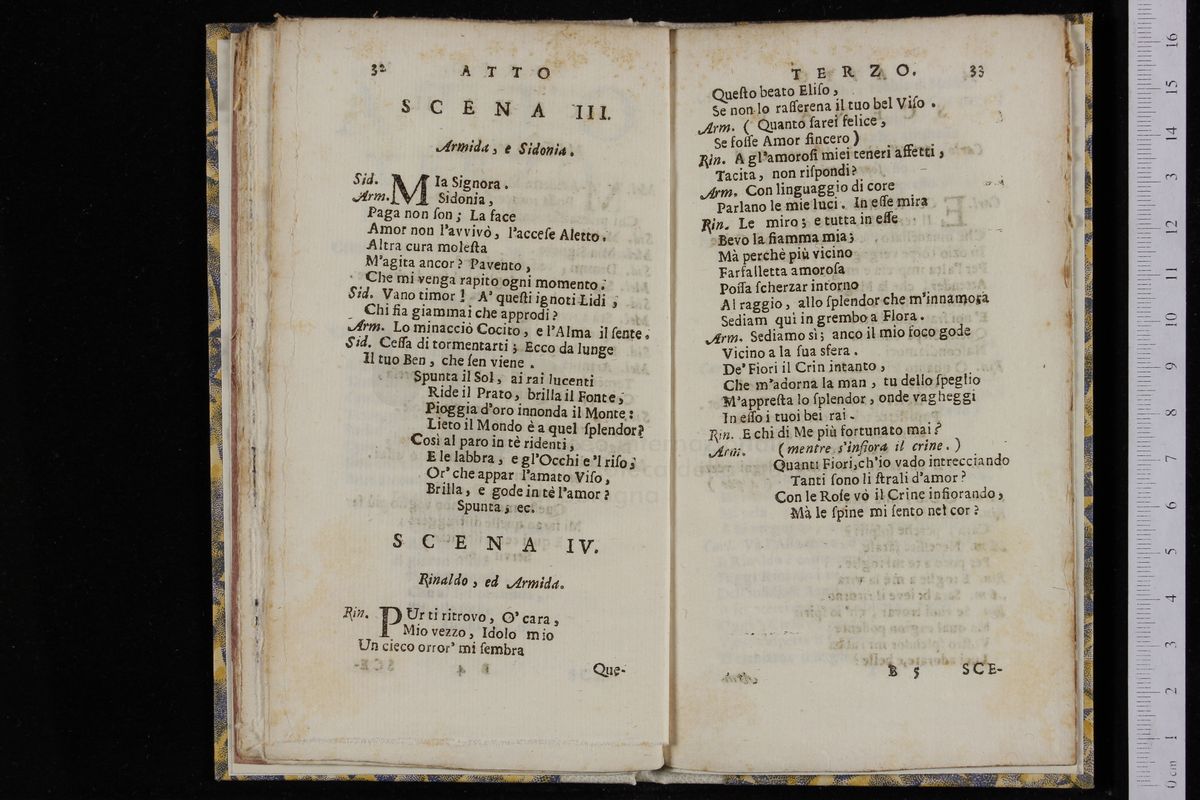 32 ATTO
SCENA III.
Armida, e Sidonia.
Sid. MIa Signora.
Arm. Sidonia,
Paga non ſon; La face
Amor non l'avvivò, l'acceſe Aletto.
Altra cura moleſta
M'agita ancor? Pavento,
Che mi venga rapito ogni momento.
Sid. Vano timor! A' queſti ignoti Lidi,
Chi fia giammai che approdi?
Arm. Lo minacciò Cocito, e l'Alma il ſente.
Sid. Ceſſa di tormentarti; Ecco da lunge
Il tuo Ben, che ſen viene.
Spunta il Sol, ai rai lucenti
Ride il Prato, brilla il Fonte,
Pioggia d'oro innonda il Monte:
Lieto il Mondo è a quel ſplendor?
Così al paro in tè ridenti,
E le labbra, e gl'Occhi e 'l riſo;
Or' che appar l'amato Viſo,
Brilla, e gode in tè l'amor?
Spunta, ec.
SCENA IV.
Rinaldo, ed Armida.
Rin. PUr ti ritrovo, O' cara,
Mio vezzo, Idolo mio
Un cieco orror' mi ſembra
Que-
TERZO. 33
Queſto beato Eliſo,
Se non lo raſſerena il tuo bel Viſo.
Arm. (Quanto ſarei felice,
Se foſſe Amor ſincero)
Rin. A gl'amoroſi miei teneri affetti,
Tacita, non riſpondi?
Arm. Con linguaggio di core
Parlano le mie luci. In eſſe mira
Rin. Le miro; e tutta in eſſe
Bevo la fiamma mia;
Mà perchè più vicino
Farfalletta amoroſa
Poſſa ſcherzar intorno
Al raggio, allo ſplendor che m'innamora
Sediam quì in grembo a Flora.
Arm. Sediamo sì; anco il mio foco gode
Vicino a la ſua sfera.
De' Fiori il Crin intanto,
Che m'adorna la man, tu dello ſpeglio
M'appreſta lo ſplendor, onde vagheggi
In eſſo i tuoi bei rai.
Rin. E chi di Me più fortunato mai?
Arm. (mentre s'infiora il crine.)
Quanti Fiori, ch'io vado intrecciando
Tanti ſono li ſtrali d'amor?
Con le Roſe vò il Crine infiorando,
Mà le ſpine mi ſento nel cor?
B 5 SCE-